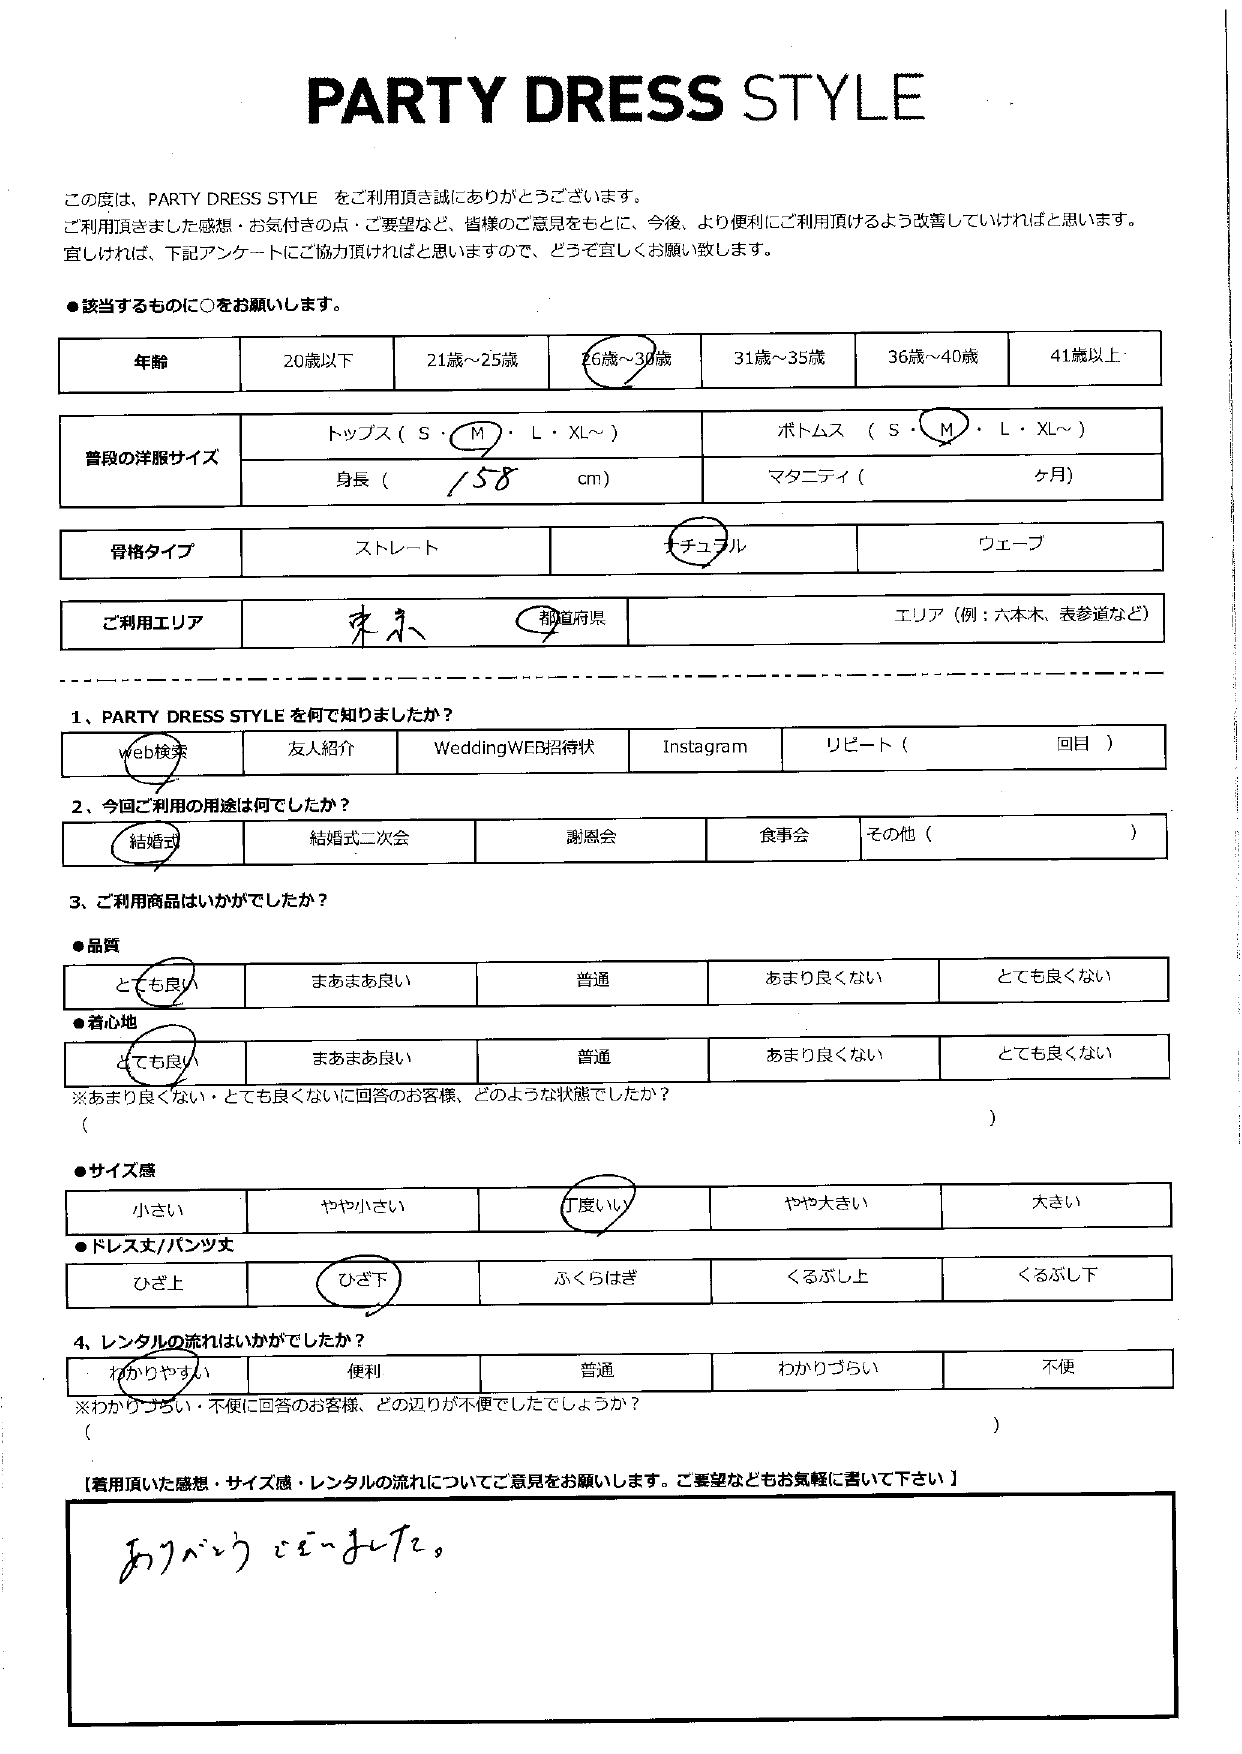 PARTY DRESS STYLE
この度は、PARTY DRESS STYLE をご利用頂き誠にありがとうございます。
ご利用頂きました感想・お気付きの点・ご要望など、皆様のご意見をもとに、今後、より便利にご利用頂けるよう改善していければと思います。
宜しければ、下記アンケートにご協力頂ければと思いますので、どうぞ宜しくお願い致します。
●該当するものに○をお願いします。
年齢 20歳以下 21歳～25歳 26歳～30歳 31歳～35歳 36歳～40歳 41歳以上
普段の洋服サイズ
トップス ( S ・ M ・ L ・ XL～ ) ボトムス ( S ・ M ・ L ・ XL～ )
身長 ( 158 cm) マタニティ ( ヶ月)
骨格タイプ ストレート ナチュラル ウェーブ
ご利用エリア 東京 都道府県 エリア（例：六本木、表参道など）
1、PARTY DRESS STYLE を何で知りましたか？
web検索 友人紹介 WeddingWEB招待状 Instagram リピート ( 回目 )
2、今回ご利用の用途は何でしたか？
結婚式 結婚式二次会 謝恩会 食事会 その他 ( )
3、ご利用商品はいかがでしたか？
●品質
とても良い まあまあ良い 普通 あまり良くない とても良くない
●着心地
とても良い まあまあ良い 普通 あまり良くない とても良くない
※あまり良くない・とても良くないに回答のお客様、どのような状態でしたか？
( )
●サイズ感
小さい やや小さい 丁度いい やや大きい 大きい
●ドレス丈/パンツ丈
ひざ上 ひざ下 ふくらはぎ くるぶし上 くるぶし下
4、レンタルの流れはいかがでしたか？
わかりやすい 便利 普通 わかりづらい 不便
※わかりづらい・不便に回答のお客様、どの辺りが不便でしたでしょうか？
( )
【着用頂いた感想・サイズ感・レンタルの流れについてご意見をお願いします。ご要望などもお気軽に書いて下さい 】
ありがとうございました。